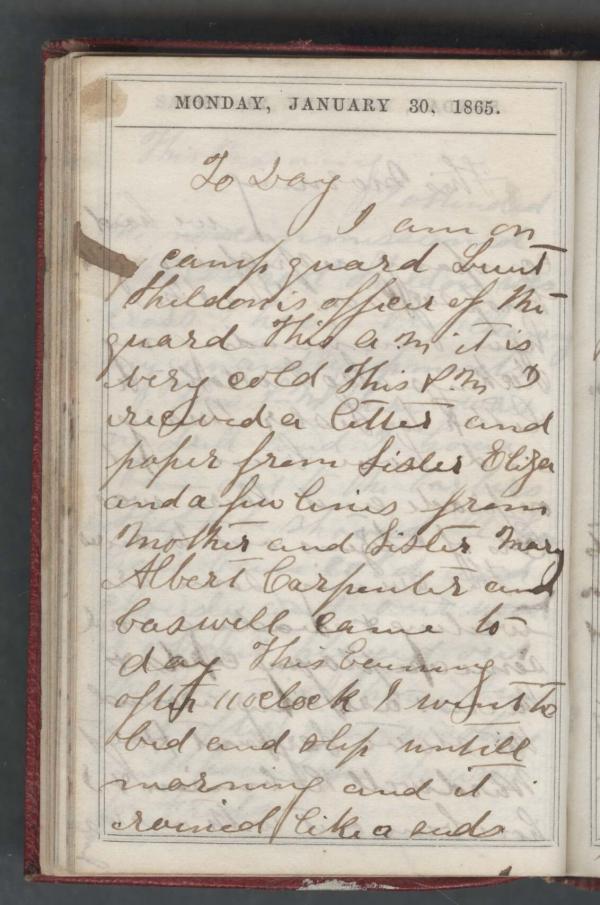 MONDAY, JANUARY 30, 1865.
To Day
I am on
camp guard Lieut
Sheldon is officer of the
guard This a m it is
very cold This P m I
received a letter and
paper from Sister Eliza
and a few lines from
Mother and Sister Mary
Albert Carpenter and
Caswell came to
day This Evening
after 11 oclock I went to
bed and slep untill
morning and it
rained like a